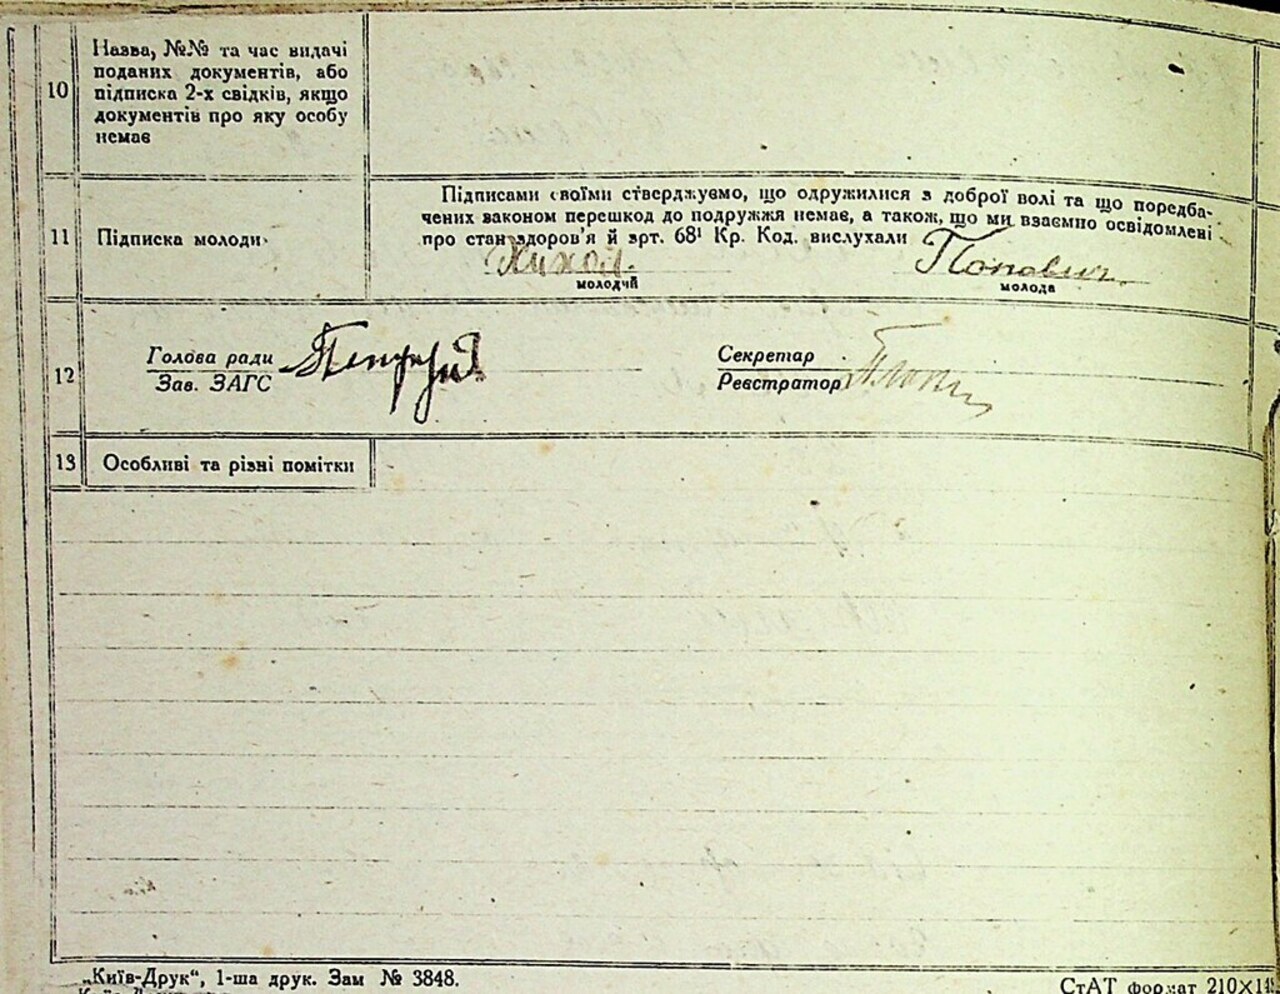 10
Назва, №№ та час видачі
поданих документів, або
підписка 2-х свідків, якщо
документів про яку особу
немає
Підписами своїми стверджуємо, що одружилися з доброї волі та що поредба-
чених законом перешкод до подружжя немає, а також, що ми взаємно освідомлені
про стан здоров'я й арт. 68¹ Кр. Код. вислухали
11
Підписка молоди
Попович
молодий
молода
12
Голова ради
Зав. ЗАГС
Секретар
Реєстратор
13
Особливі та різні помітки
„Київ-Друк“, 1-ша друк. Зам № 3848.
СтАТ формат 210×14